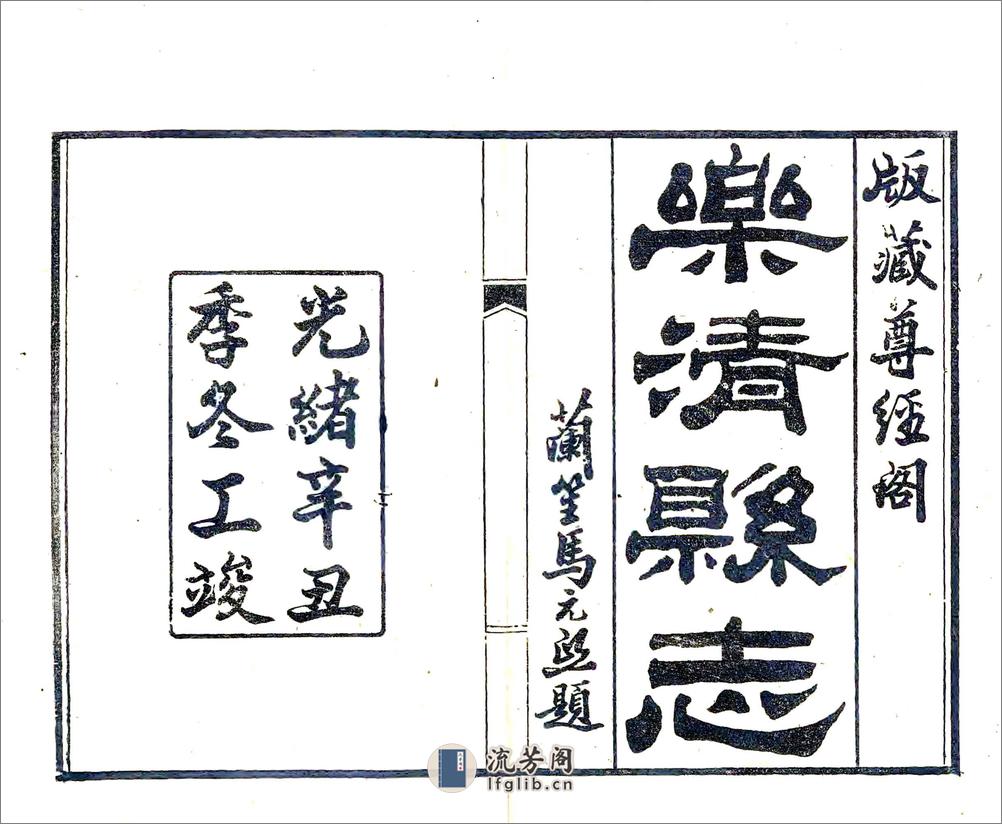 版藏尊經閣
樂清縣志
蘭笙馬元熙題
光緒辛丑
季冬工竣
流芳阁
lfglib.cn